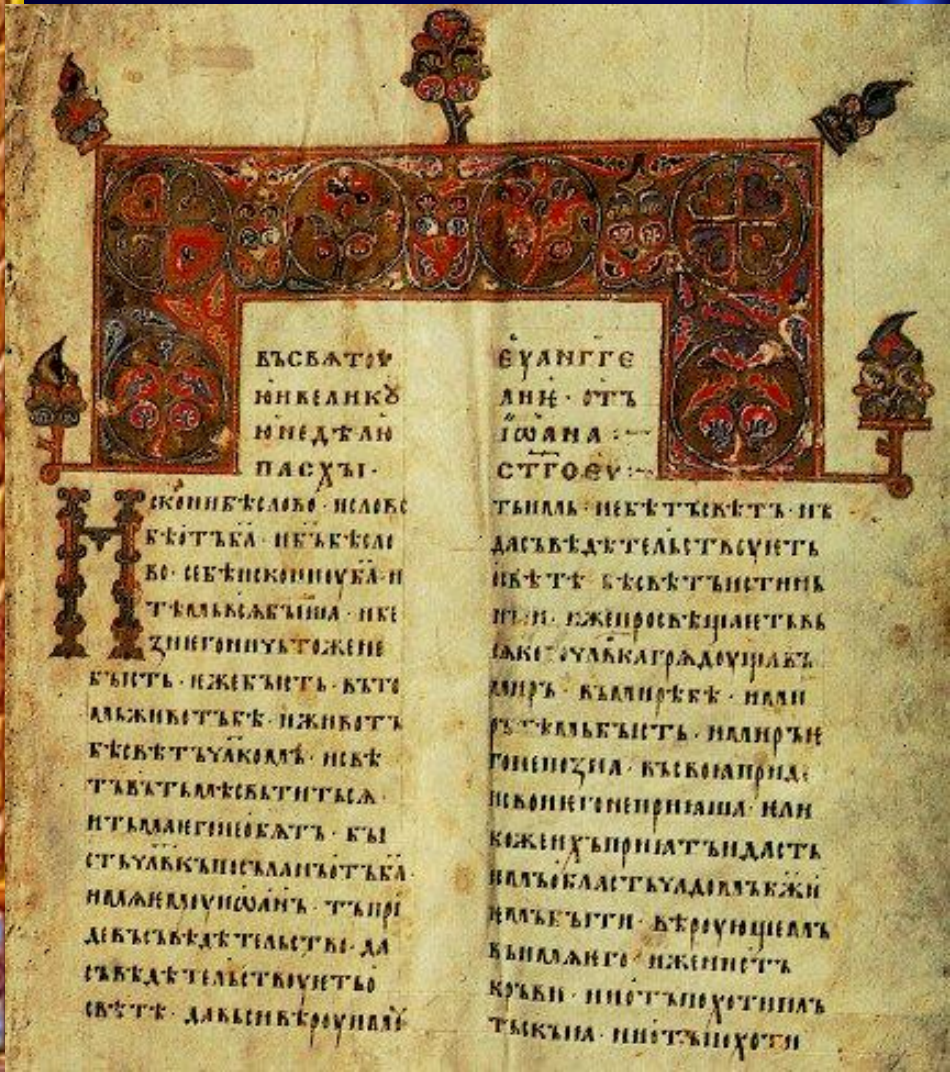 ВЪСВѦТОУ
ЮИВЕЛИКꙊ
ЮНЕДѢЛЮ
ПАСХЫ·
Искони бѣ слово· и слово
бѣ отъ б҃а· и б҃ъ бѣ сло
во· се бѣ искони оу б҃а· и
тѣмь вьсѧ быша· и бе
з него ничьтоже не
бысть· ѥже бысть· въ то
мь животъ бѣ· и животъ
бѣ свѣтъ чл҃комъ· и свѣ
тъ въ тьмѣ свьтитьсѧ·
и тьма ѥго не обѧтъ· бы
сть чл҃вкъ посъланъ отъ б҃а·
имѧ ѥмоу иѡанъ· тъ при
де въ съвѣдѣтельство· да
съвѣдѣтельствоуѥть о
свѣтѣ· да вьси вѣроу имоу
ЕУАНГГЕ
ЛИѤ· ОТЪ
ІѠАНА:~
СТ҃ГОЕУ:~
тъ имь· не бѣ тъ свѣтъ· нъ
да съвѣдѣтельствоуѥть
о свѣтѣ бѣ свѣтъ истинь
ныи· иже просвѣщаѥть вь
чл҃вка грѧдоуща въ
миръ· въ мирѣ бѣ· и ми
ръ тѣмь бысть· и миръ ѥ
го не позна· въ своꙗ приде
и свои ѥго не приꙗша· ѥли
ко же ихъ приꙗтъ и дасть
имъ область чадомъ б҃жи
ѥмъ быти· вѣроующемъ
въ имѧ ѥго· иже не истъ
кръви· ни отъ похоти плъ
тьскыꙗ· ни отъ похоти